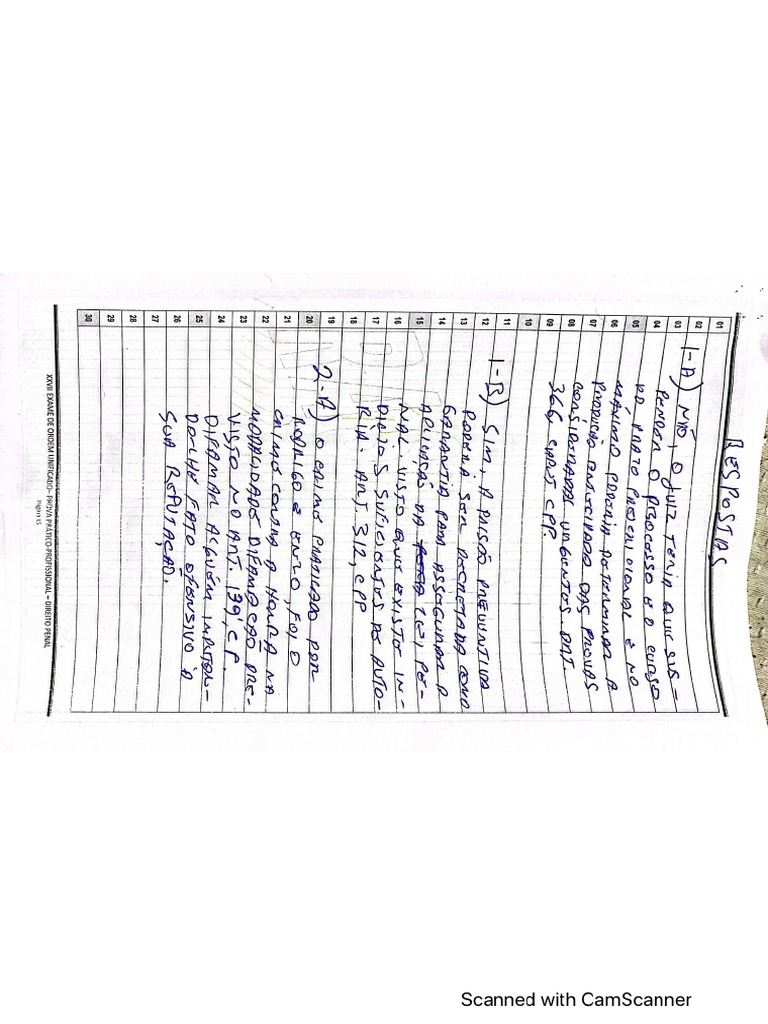 RESPOSTAS
01
02
03 1-A) NÃO, O JUIZ TERIA QUE SUS-
04 PENDER O PROCESSO E O CURSO
05 DO PRAZO PRESCRICIONAL E NO
06 MÁXIMO PODERIA DETERMINAR A
07 PRODUÇÃO ANTECIPADA DAS PROVAS
08 CONSIDERADAS URGENTES ART.
09 366, CAPUT, CPP.
10
11
12 1-B) SIM, A PRISÃO PREVENTIVA
13 PODERÁ SER DECRETADA COMO
14 GARANTIA PARA ASSEGURAR A
15 APLICAÇÃO DA LEI PE-
16 NAL. VISTO QUE EXISTE IN-
17 DÍCIOS SUFICIENTES DE AUTO-
18 RIA. ART. 312, CPP
19
20 2-A) O CRIME PRATICADO POR
21 RODRIGO E ENZO, FOI O
22 CRIME CONTRA A HONRA NA
23 MODALIDADE DIFAMAÇÃO PRE-
24 VISTO NO ART. 139, CP.
25 DIFAMAR ALGUÉM IMPUTAN-
26 DO-LHE FATO OFENSIVO À
27 SUA REPUTAÇÃO.
28
29
30
XXVII EXAME DE ORDEM UNIFICADO – PROVA PRÁTICO-PROFISSIONAL – DIREITO PENAL
Página 15
Scanned with CamScanner